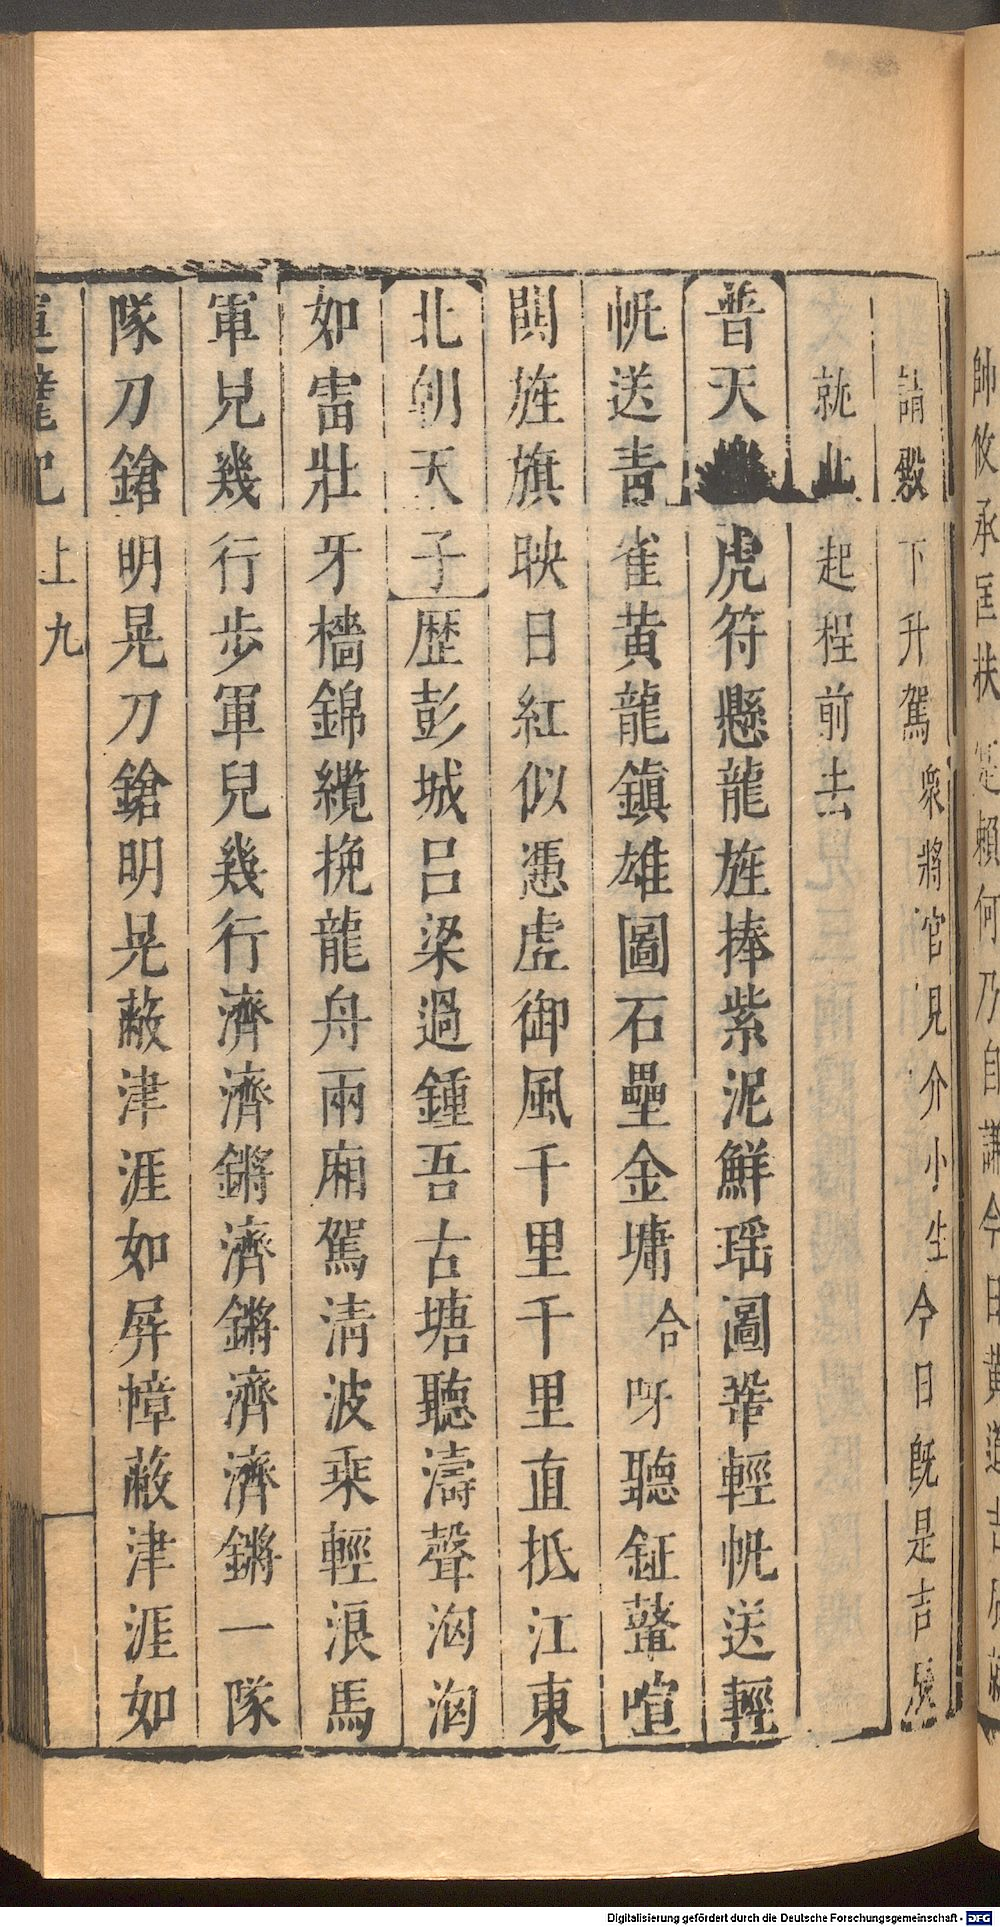 帥攸承匡扶 賴何乃自謙今日黃道吉
請敎下升駕衆將官見介小生今日旣是吉
就此起程前去
普天 虎符懸龍旌捧紫泥鮮瑶圖鞏輕帆送輕
帆送青雀黃龍鎮雄圖石壘金墉合呀聽鉦鼛喧
閧旌旗映日紅似憑虛御風千里千里直抵江東
北朝天子歷彭城呂梁過鍾吾古塘聽濤聲洶洶
如雷壯牙檣錦纜挽龍舟兩廂駕清波乘輕浪馬
軍兒幾行步軍兒幾行濟濟鏘濟鏘濟濟鏘一隊
隊刀鎗明晃刀鎗明晃蔽津涯如屏幛蔽津涯如
記 上 九
Digitalisierung gefördert durch die Deutsche Forschungsgemeinschaft - DFG